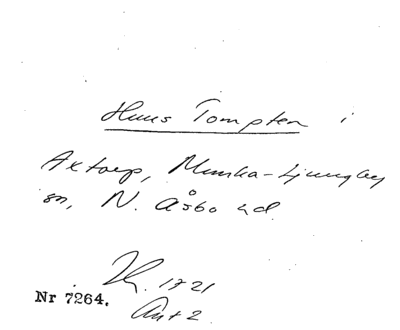 Huus Tompten i
Axtorp, Munka-Ljungby
sn, N. Åsbo hd.
1721
Nr 7264. Ant 2